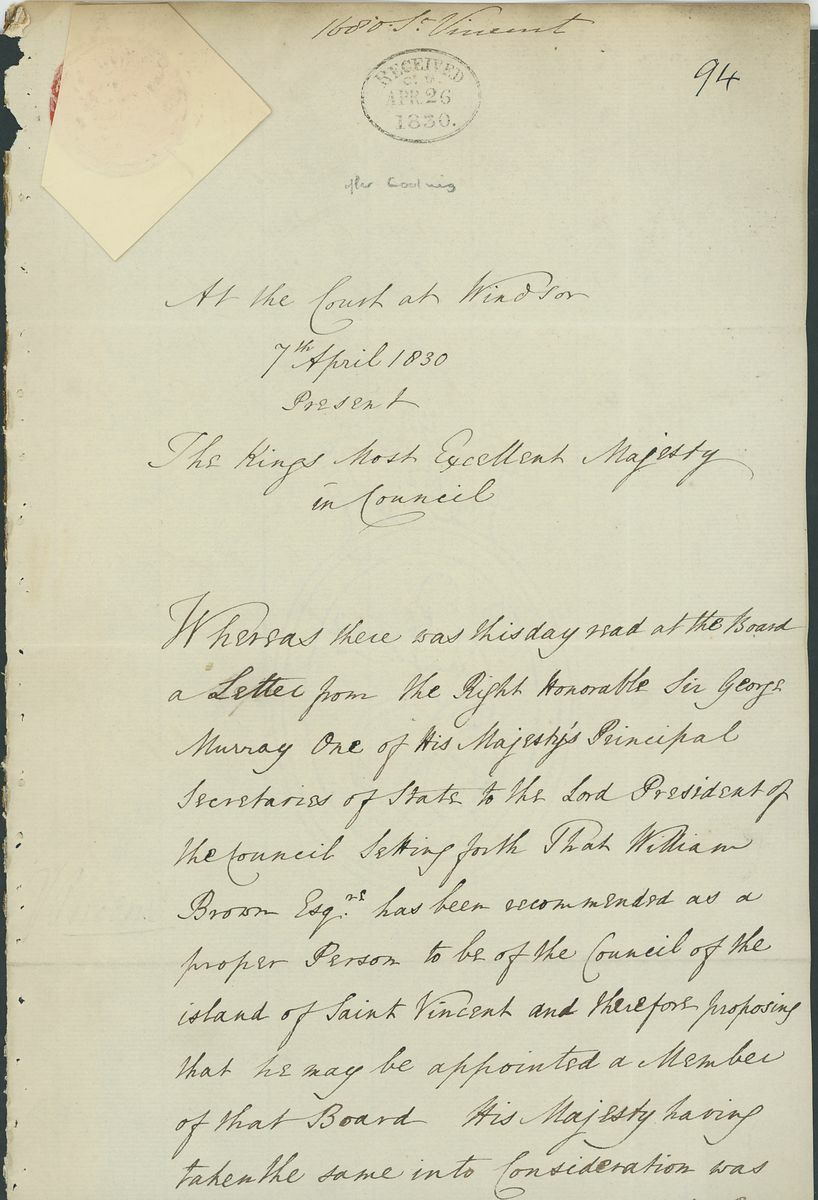 1680. St. Vincent
94
RECEIVED
APR 26
1830.
At the Court at Windsor
7th April 1830
Present
The Kings Most Excellent Majesty
in Council
Whereas there was this day read at the Board
a Letter from the Right Honorable Sir George
Murray One of His Majesty's Principal
Secretaries of State to the Lord President of
the Council Setting forth That William
Brown Esqre. has been recommended as a
proper Person to be of the Council of the
island of Saint Vincent and therefore proposing
that he may be appointed a Member
of that Board His Majesty having
taken the same into Consideration was